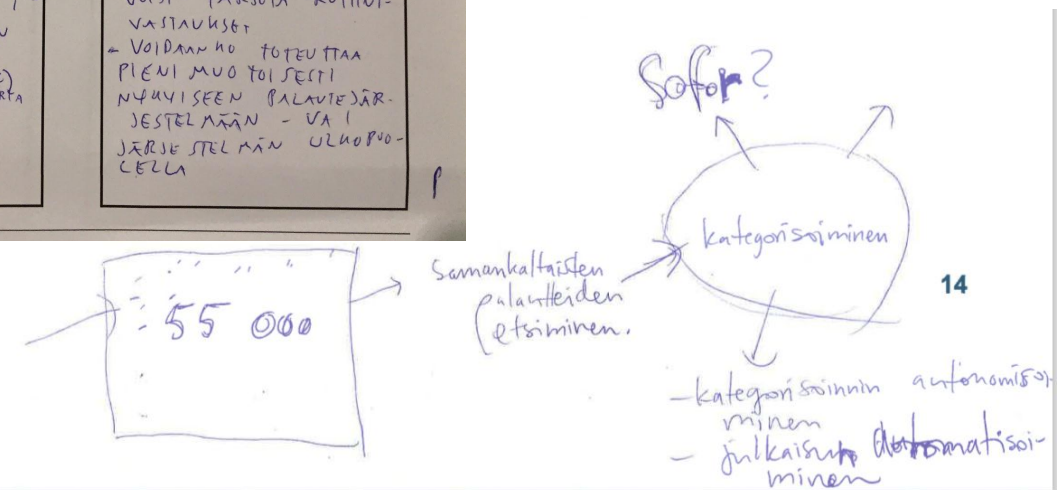 VASTAUKSET
- VOIDAANKO TOTEUTTAA
PIENIMUOTOISESTI
NYKYISEEN PALAUTEJÄR-
JESTELMÄÄN - VAI
JÄRJESTELMÄN ULKOPUO-
LELLA
Sofor?
kategorisoiminen
14
55 000
Samankaltaisten
palautteiden
etsiminen.
- kategorisoinnin automomisoi-
minen
- julkaisun automatisoi-
minen